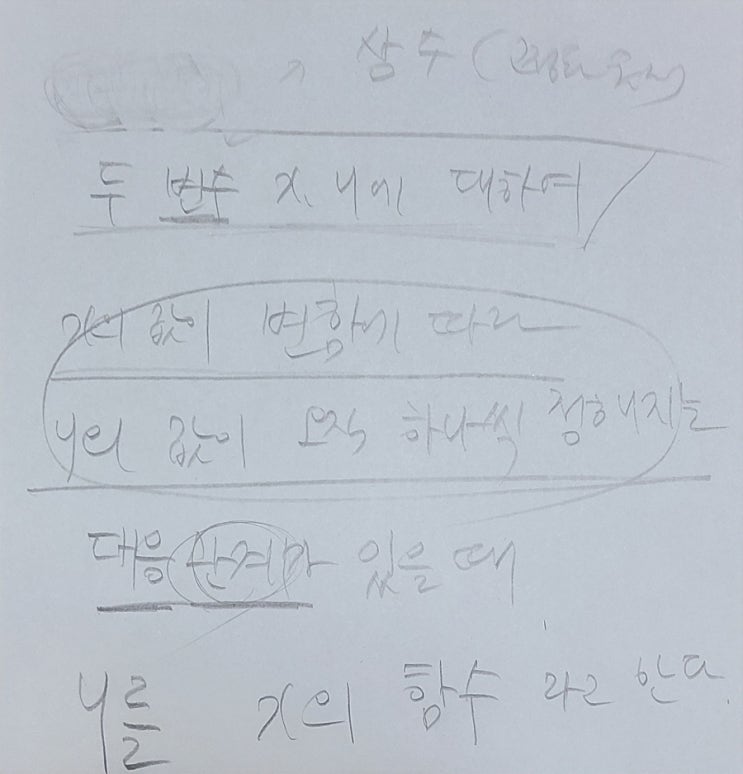 상수
두 변수 x, y에 대하여
x의 값이 변함에 따라
y의 값이 오직 하나씩 정해지는
대응 관계가 있을 때
y를 x의 함수 라고 한다.